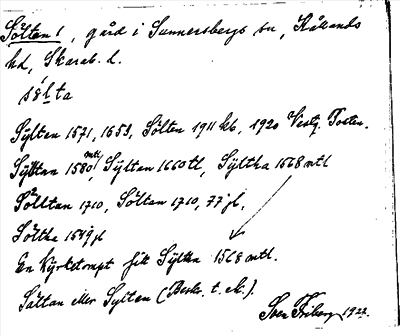 Sölten 1, gård i Sunnersbergs sn, Kållands
hd, Skarab. l.
sö́lta
Sylten 1571, 1653, Sölten 1911 kb, 1920 Västg. Posten.
Syltan 1580 mtl, Syltan 1660 tl, Syltha 1568 mtl
Sölltan 1710, Söltan 1710, 77 jl,
Söltha 1549 jl
En Kyrketompt fik Syltha 1568 mtl.
Sältan eller Sylten (Beskr. t. ek.).
Sven Friberg 1922.